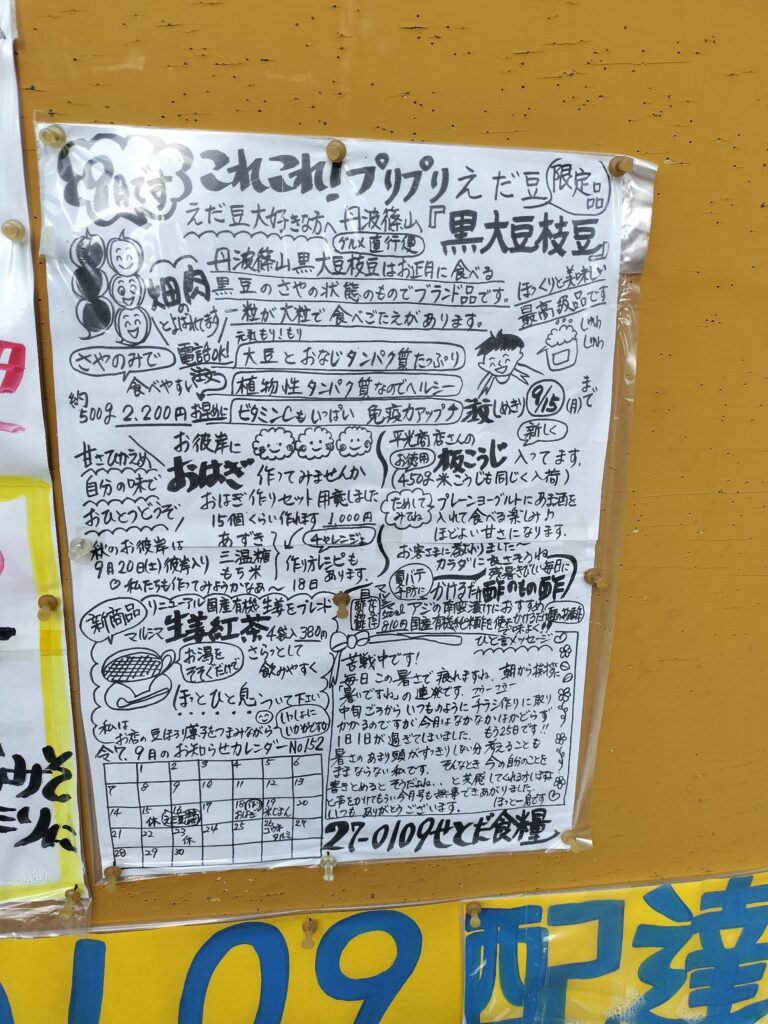 9月です
これこれ！プリプリえだ豆
限定品
えだ豆大好きな方へ 丹波篠山『黒大豆枝豆』
グルメ直行便
丹波篠山黒大豆枝豆はお正月に食べる
黒豆のさやの状態のものでブランド品です。
一粒が大粒で食べごたえがあります。
ほっくりと美味しい
最高級品です
畑の肉
とよばれてます
元気もり！もり
さやのみで
食べやすい
電話OK!
大豆とおなじタンパク質たっぷり
植物性タンパク質なのでヘルシー
ビタミンCもいっぱい 免疫力アップ
じゅわじゅわ
約500g 2,200円
お早めに
しめきり 9/15(月)まで
甘さひかえめ
自分の味で
おひとつどうぞ
お彼岸に
おはぎ作ってみませんか
おはぎ作りセット用意しました
15個くらい作れます 1,000円
あずき
三温糖
もち米
チャレンジ
作り方レシピも
あります。
18日
秋のお彼岸は
9月20日(土)彼岸入り
♡私たちも作ってみようかなぁ
新しく
平光商店さんの
お徳用 板こうじ 入ってます。
(450g米こうじも同じく入荷)
ためしてみてね
プレーンヨーグルトにあま酒を
入れて食べる楽しみ♪
ほどよい甘さになります。
お客さまに教わりました〜
カラダに良さそうね
残暑きびしい毎日に
夏バテ予防に
かけるだけ 酢のもの酢
アジの南蛮漬けにおすすめ
910円 国産有機純米酢を使
新商品
リニューアル国産有機生姜をブレンド
マルシマ 生姜紅茶 4袋入380円
お湯をそそぐだけで
さらっとして
飲みやすく
ほっとひと息ついて下さい
私は
お店の豆ほろり菓子をつまみながら
いっしょにいかがですか
令7.9月のお知らせカレンダー No152
1 2 3 4 5 6
7 8 9 10 11 12 13
14 15休 16 17 18(木)おはぎ 19 20
21 22 23休 24 25 26 27
28 29 30
ひと言メッセージ
苦戦中です！
毎日この暑さで疲れますね、朝から挨拶は
「暑いですね」の連発です。フゥーフゥー
中旬ごろからいつものようにチラシ作りに取り
かかるのですが今月はなかなかはかどらず
1日1日が過ぎてしまいました。もう25日です!!
暑さのあまり頭がすっきりしない分考えることも
ままならない私です。そんなとき今の自分のことを
書きとめるとそうだよね・・と共感してくれるみはなね
と声をかけてもらい今月号も無事できあがりました。
いつもありがとうございます。
ほっと一息です
27-0109せとだ食糧
0109
配達